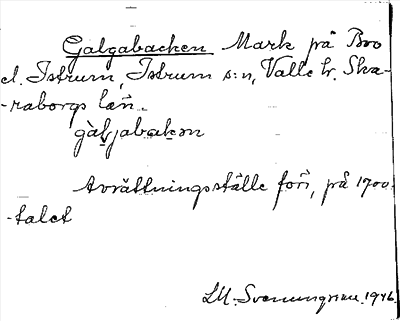 Galgabacken Mark på Bro
el. Istrum, Istrum s:n, Valle hr. Ska-
-raborgs län.
gàljabakən
Avrättningsställe förr, på 1700-
-talet
LM. Svenungsson. 1946.